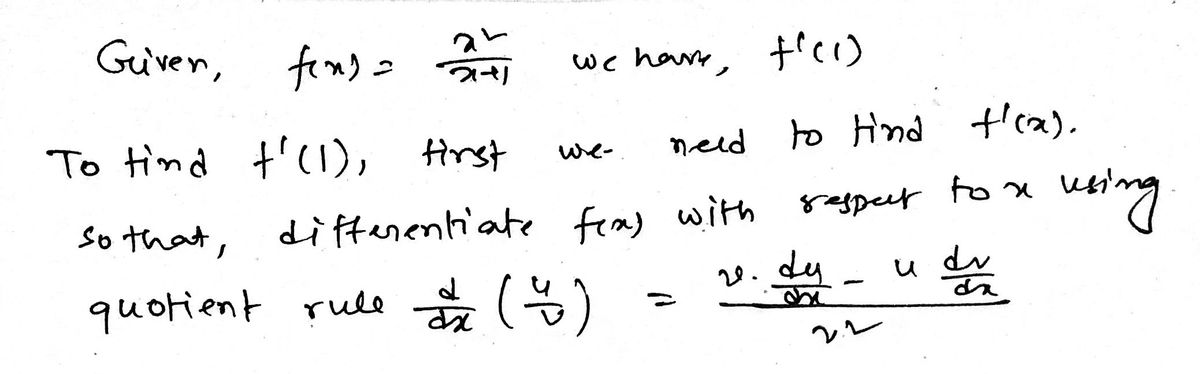 Given, f(x) = x²/x+1 we have, f'(1)
To find f'(1), first we need to find f'(x).
so that, differentiate f(x) with respect to x using
quotient rule d/dx (u/v) = v. du/dx - u dv/dx / v²